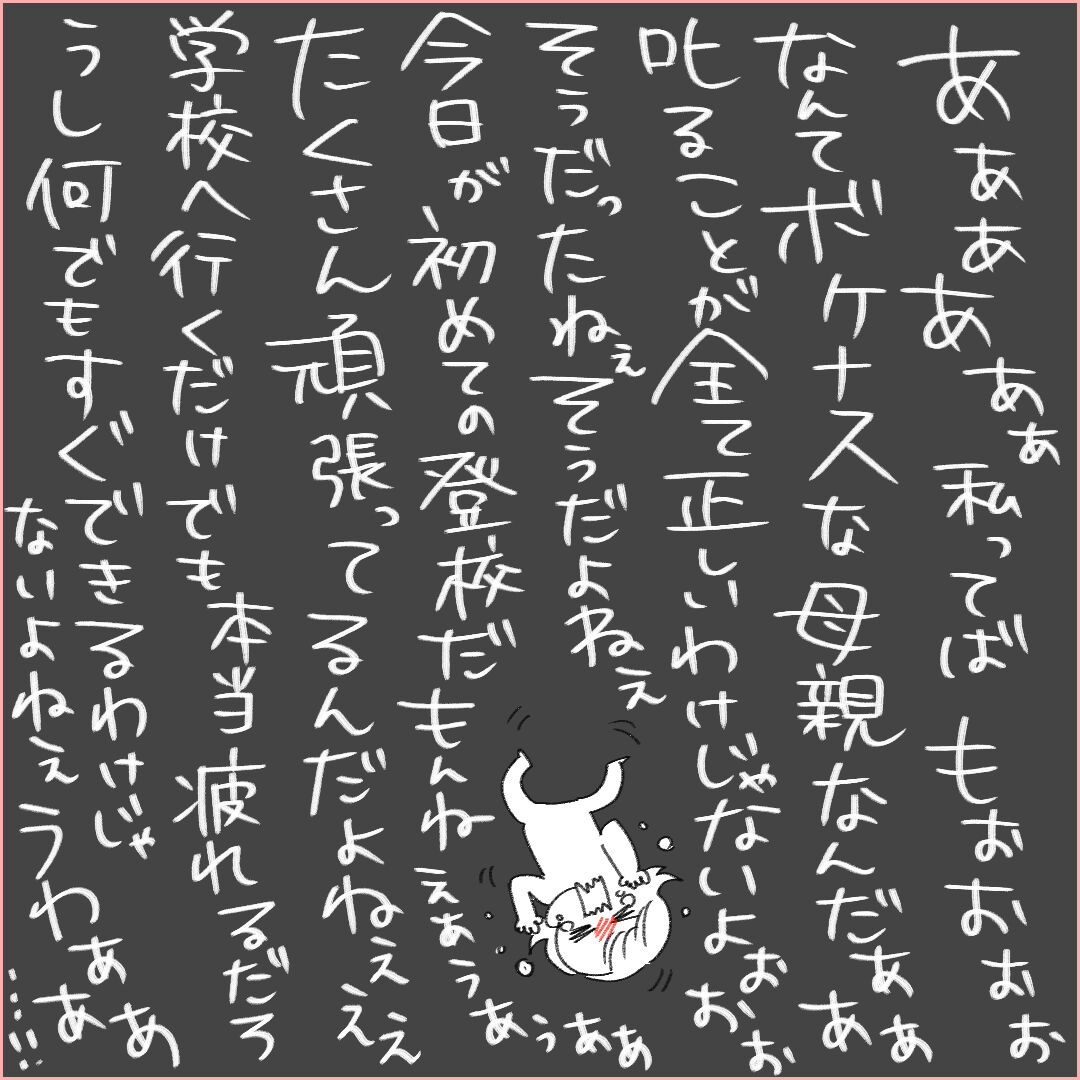 ああああぁぁ私ってばもぉおぉぉ
なんてボケナスな母親なんだぁあぁ
叱ることが全て正しいわけじゃないよぉぉぉ
そうだったねぇそうだよねぇ
今日が初めての登校だもんねぇぁぅあぅぁぁ
たくさん頑張ってるんだよねぇぇぇ
学校へ行くだけでも本当疲れるだろ
うし何でもすぐできるわけじゃ
ないよねぇうわぁああ…!!